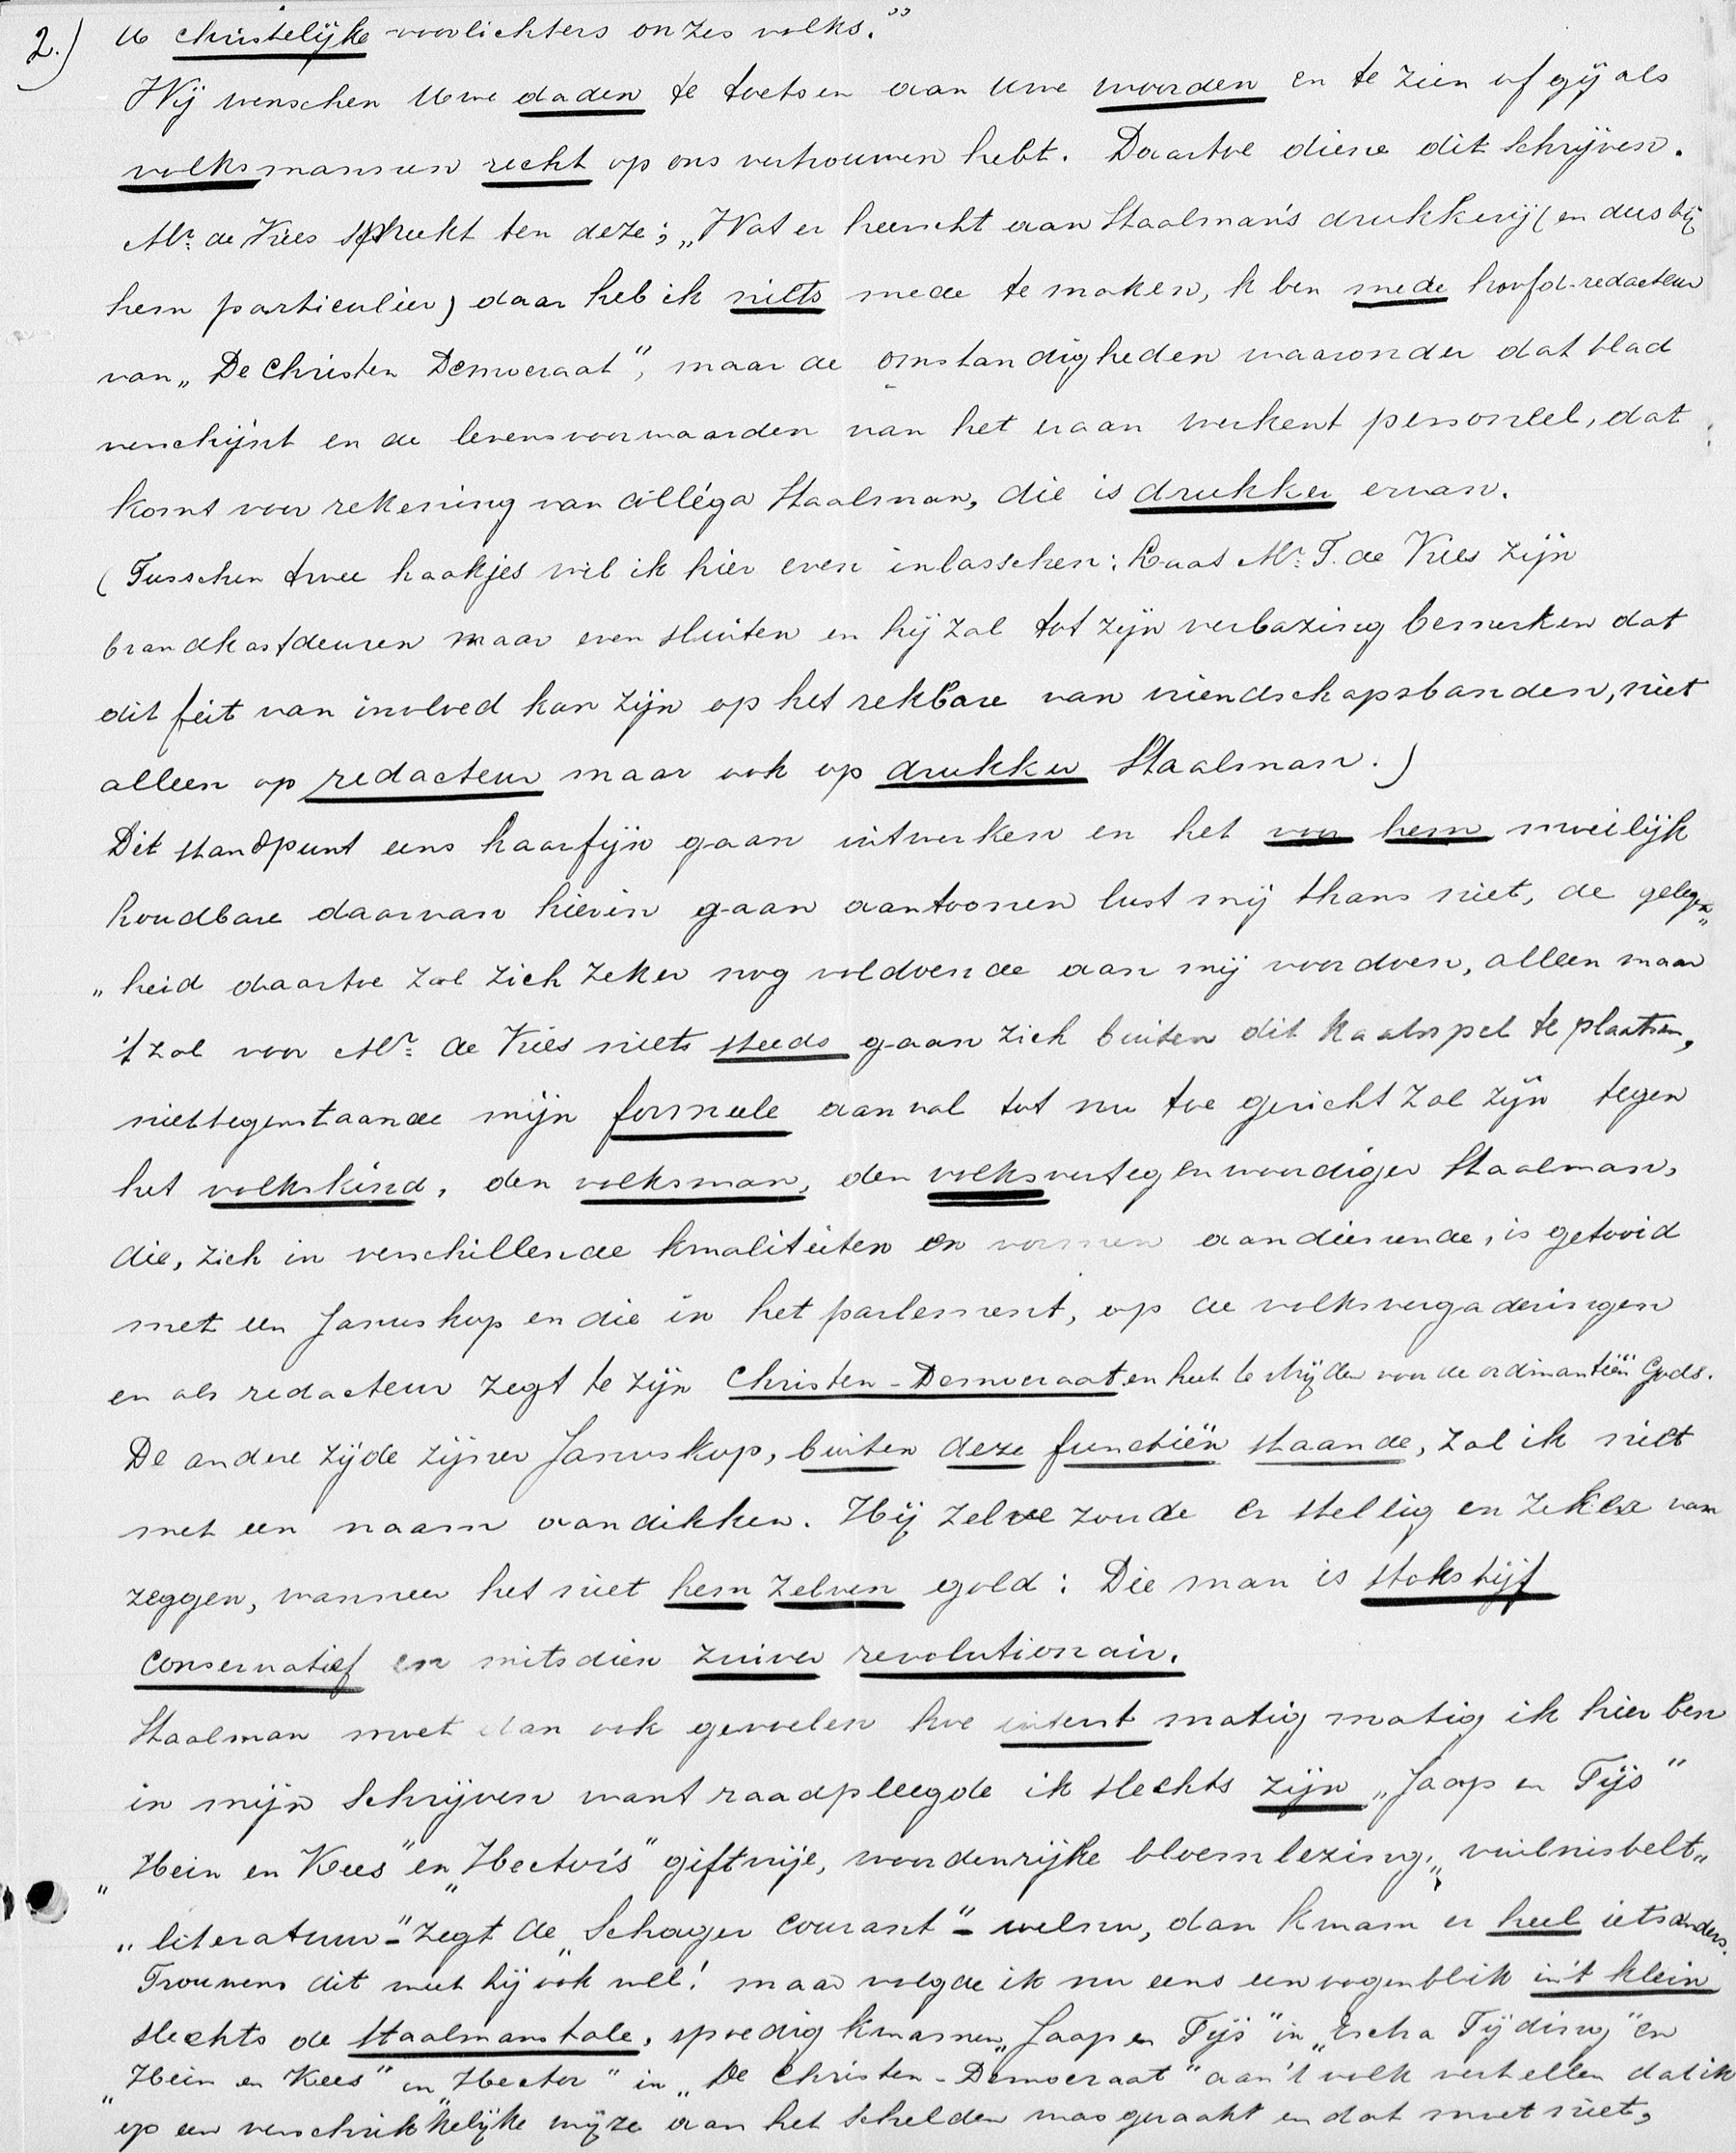 2.) U christelijke voorlichters onzes volks."
Wij wenschen Uwe daden te toetsen aan Uwe woorden en te zien of gij als
volksmannen recht op ons vertrouwen hebt. Daartoe diene dit Schrijven.
Mr. de Vries spreekt ten deze; „Wat er heerscht aan Staalman's drukkerij (en dus bij
hem particulier) daar heb ik niets mede te maken, ik ben mede hoofd-redacteur
van „De Christen Democraat", maar de omstandigheden waaronder dat blad
verschijnt en de levensvoorwaarden van het eraan werkent personeel, dat
komt voor rekening van colléga Staalman, die is drukker ervan.
(Tusschen twee haakjes wil ik hier even inlasschen: Laat Mr. T. de Vries zijn
brandkastdeuren maar even sluiten en hij zal tot zijn verbazing bemerken dat
dit feit van invloed kan zijn op het rekbare van vriendschapsbanden, niet
alleen op redacteur maar ook op drukker Staalman.)
Dit standpunt eens haarfijn gaan uitwerken en het voor hem moeilijk
houdbare daarvan hierin gaan aantoonen lust mij thans niet, de gelegen„
„heid daartoe zal zich zeker nog voldoende aan mij voordoen, alleen maar
't zal voor Mr. de Vries niets steeds gaan zich buiten dit kaatsspel te plaatsen,
niettegenstaande mijn formeele aanval tot nu toe gericht zal zijn tegen
het volkskind, den volksman, den volksvertegenwoordiger Staalman,
die, zich in verschillende kwaliteiten en vormen aandienende, is getooid
met een Januskop en die in het parlement, op de volksvergaderingen
en als redacteur zegt te zijn Christen-Democraat en heet te strijden voor de ordinantiën Gods.
De andere zijde zijner Januskop, buiten deze functiën staande, zal ik niet
met een naam aandikken. Hij zelve zoude er stellig en zeker van
zeggen, wanneer het niet hem zelven gold: Die man is stokstijf
conservatief en mitsdien zuiver revolutionair.
Staalman moet dan ook gevoelen hoe intent matig matig ik hier ben
in mijn Schrijven want raadpleegde ik slechts zijn „Jaap en Tijs"
„Hein en Kees" en „Hector's" giftvrije, woordenrijke bloemlezing, „vuilnisbelt„
„literatuur"- zegt de „Schager Courant" - welnu, dan kwam er heel iets anders.
Trouwens dit weet hij ook wel! maar volgde ik nu eens een oogenblik in 't klein
slechts de Staalmanstale, spoedig kwamen „Jaap en Tijs" in „Escha Tijding" en
„Hein en Kees" en „Hector" in „De Christen-Democraat" aan 't volk vertellen dat ik
op een verschrikkelijke wijze aan het schelden was geraakt en dat moet niet,